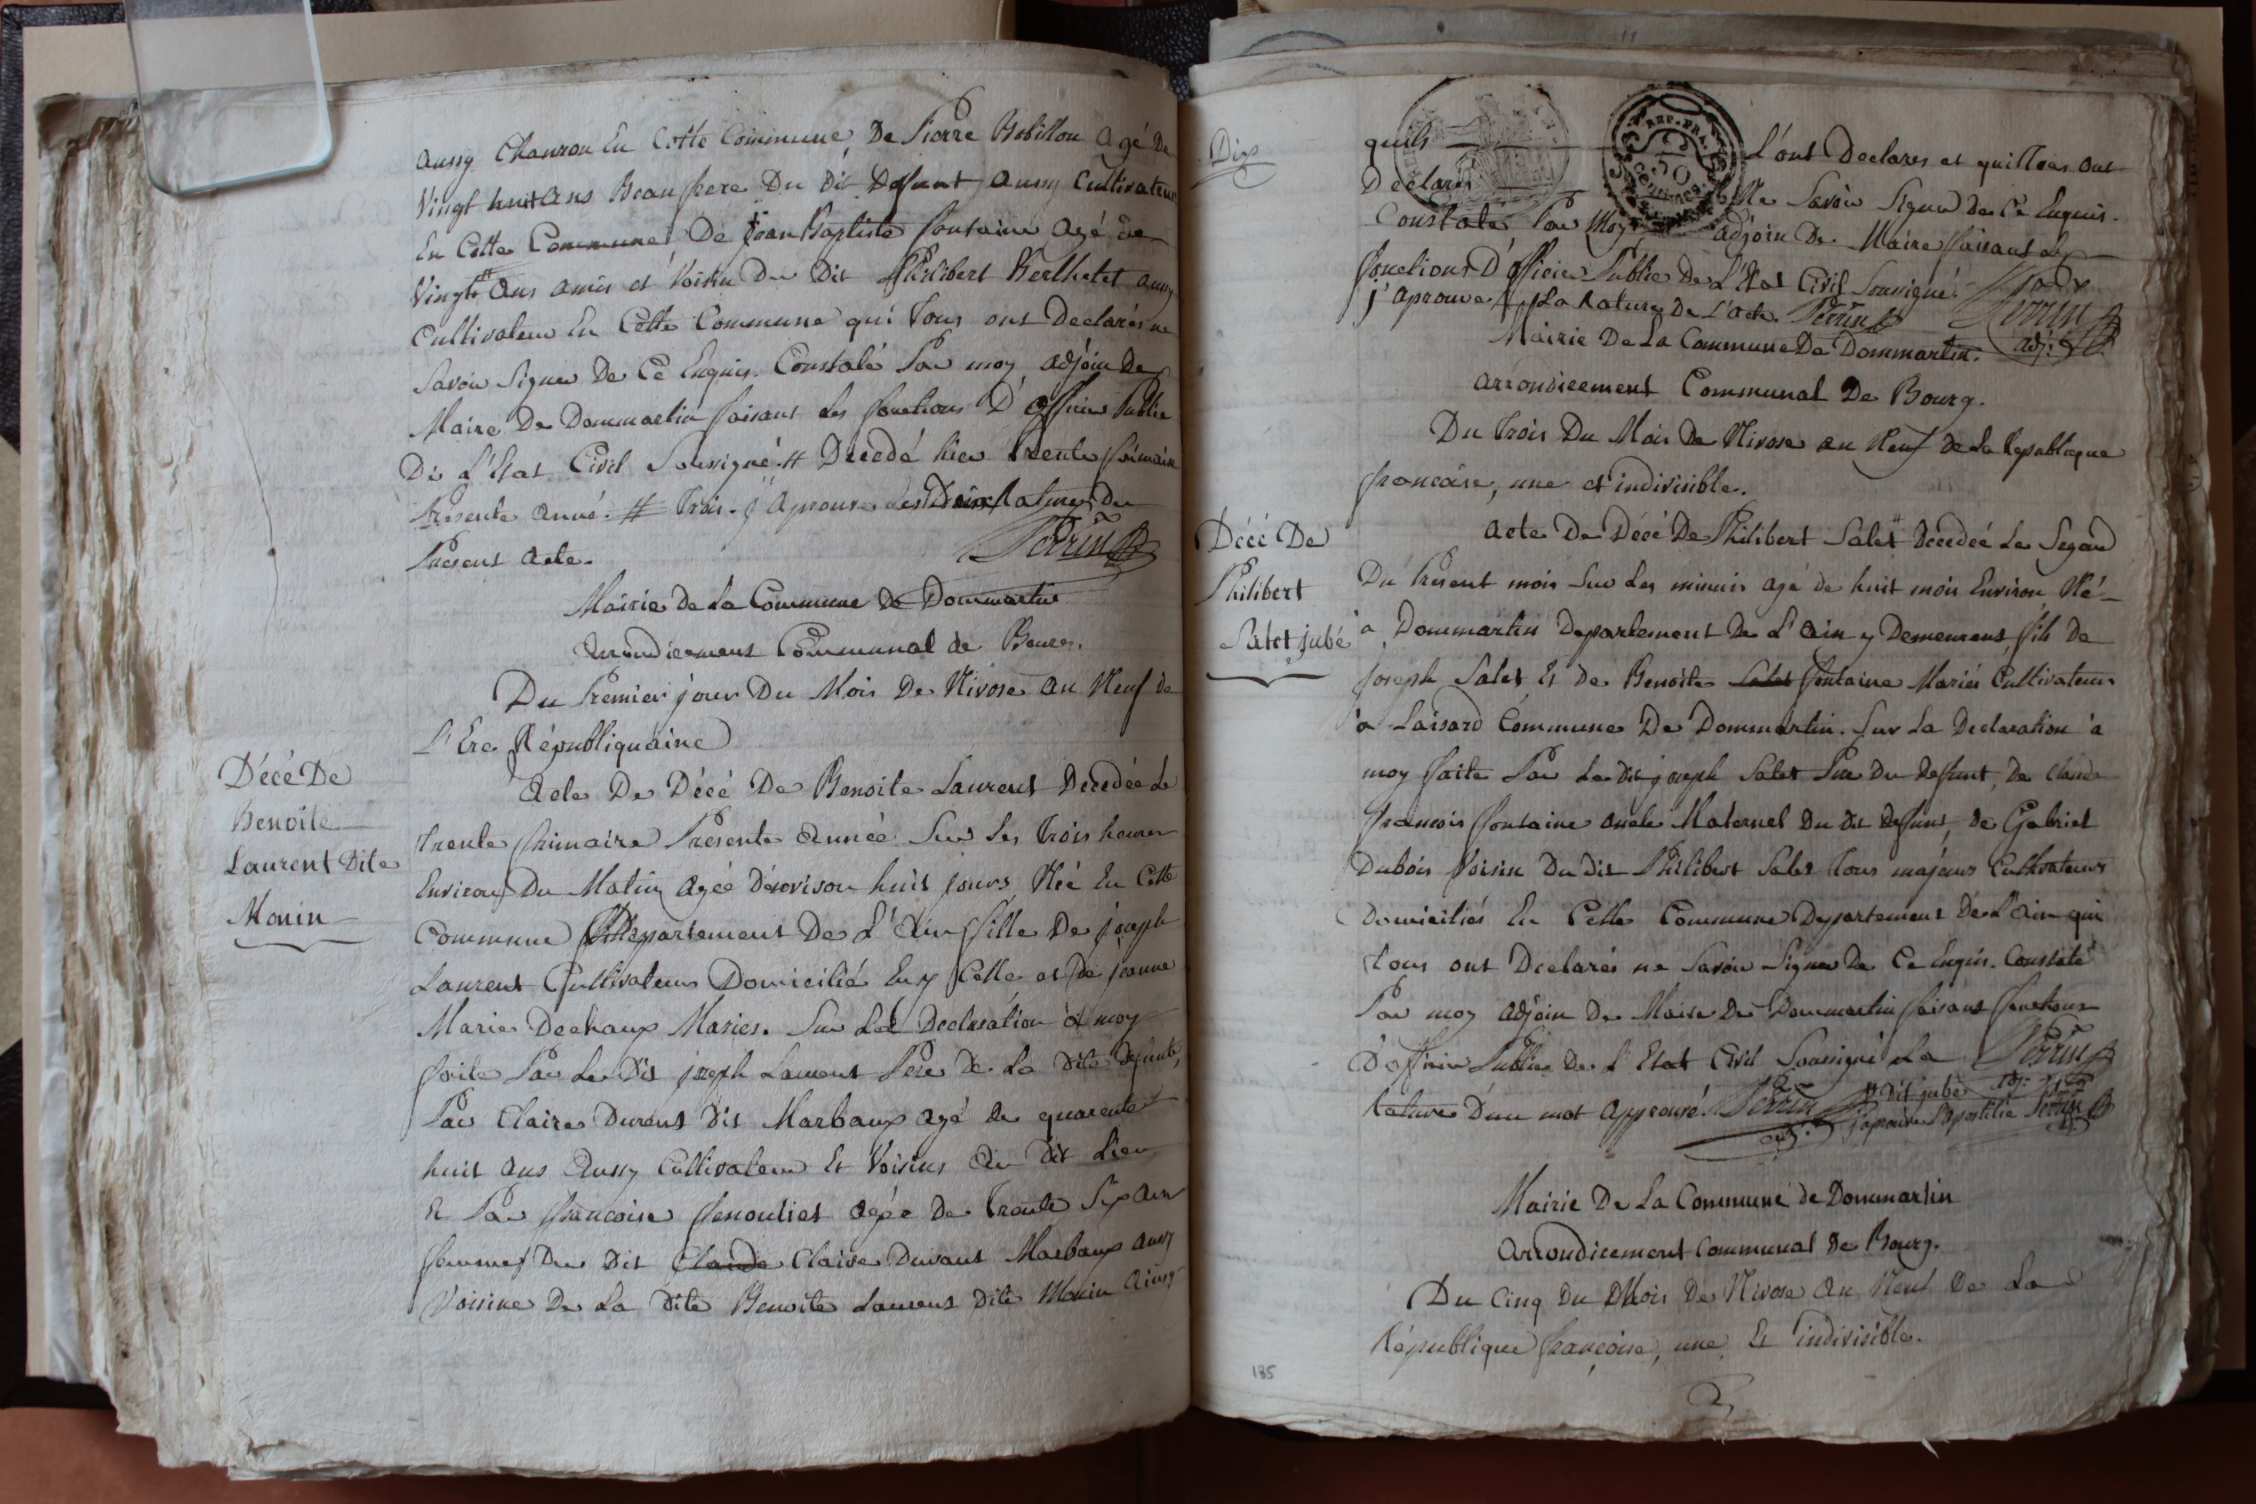 aussy Chanron En Cette Commune, De Pierre Robillon agé De
Vingt huit ans Beau frere Du dit Defunt aussy Cultivateur
En Cette Commune De Jean Baptiste fontaine agé de
Vingt # ans amis et Voisin Du Dit Philibert Berthelet aussy
Cultivateur En Cette Commune qui Tous ont Declarés ne
Savoir Signer De Ce Enquis. Constaté Par moy adjoin De
Maire De Dommartin faisant Les fonctions D'officier Public
De L'Etat Civil Soussigné. # Decedé hier trente frimaire
Presente année. # Trois. j'Aprouve Les Deux Ratures Du
Present acte. Perrin
Mairie de La Commune de Dommartin
arrondicement Communal de Bourg.
Du Premier jour Du Mois De Nivose an Neuf de
L'Ere Républiquaine
Décé De
Benoite
Laurent Dite
Monin
Acte De Décé De Benoite Laurent Decedée Le
trente frimaire Presente année Sur Les trois heures
Environ Du Matin agée Denvison huit jours Née En Cette
Commune Departement De L'Ain fille De joseph
Laurent Cultivateur Domicilié En y Celle et De jeanne
Marie Dechaux Mariés. Sur La Declaration à moy
faite Par Le Dit joseph Laurent Pere De La Dite Defunte,
Par Claire Durant dit Marbaux agé de quarente
huit ans Aussy Cultivateur Et Voisins Du Dit Lieu
Et Par francoise fenouliet agée De Trente Six ans
femme Du Dit Claude Claire Durant Marbaux aussy
Voisine De La Dite Benoite Laurent Dite Monin ainsy
Dixs
quils L'ont Declarés et quilloies ont
Declarés Ne Savoir Signer De Ce Enquis.
REP. FRA.
50
CENTIMES
Constaté Par Moy adjoin De Maire faisant Les
fonctions D'officier Public De L'Etat Civil Soussigné.
j'aprouve La Rature De L'acte. Perrin Perrin
adj.
Mairie De La Commune De Dommartin.
arrondicement Communal De Bourg.
Du Trois Du Mois De Nivose an Neuf de La Republique
francaise, une et indivisible.
Décé De
Philibert
Salet jubé
Acte De Décé De Philibert Salet # Decedeé Le Segond
Du Present mois Sur Les minuis agé de huit mois Environ Né
à Dommartin Departement De L'Ain y Demeurent, fils De
joseph Salet Et de Benoite Salet fontaine Mariés Cultivateurs
à Laisard Commune De Dommartin. Sur La Declaration à
moy faite Par Le Dit joseph Salet Pere Du Defunt, De Claude
francois fontaine oncle Maternel Du Dit Defunt, de Gabriel
Dubois Voisin Du Dit Philibert Salet Tous majeurs Cultivateurs
Domiciliés En Cette Commune Departement De L'Ain qui
tous ont Declarés ne Savoir Signer De Ce Enquis. Constaté
Par moy adjoin De Maire De Dommartin faisant fonctions
D'officier Public De L'Etat Civil Soussigné La Perrin
Rature Dun mot approuvé. Perrin # Dit jubé
adj. j'aprouve L'apostille Perrin
Mairie De La Commune de Dommartin
Arrondicement Communal De Bourg.
Du Cinq Du Mois De Nivose An Neuf De La
République françoise, une Et indivisible.
185